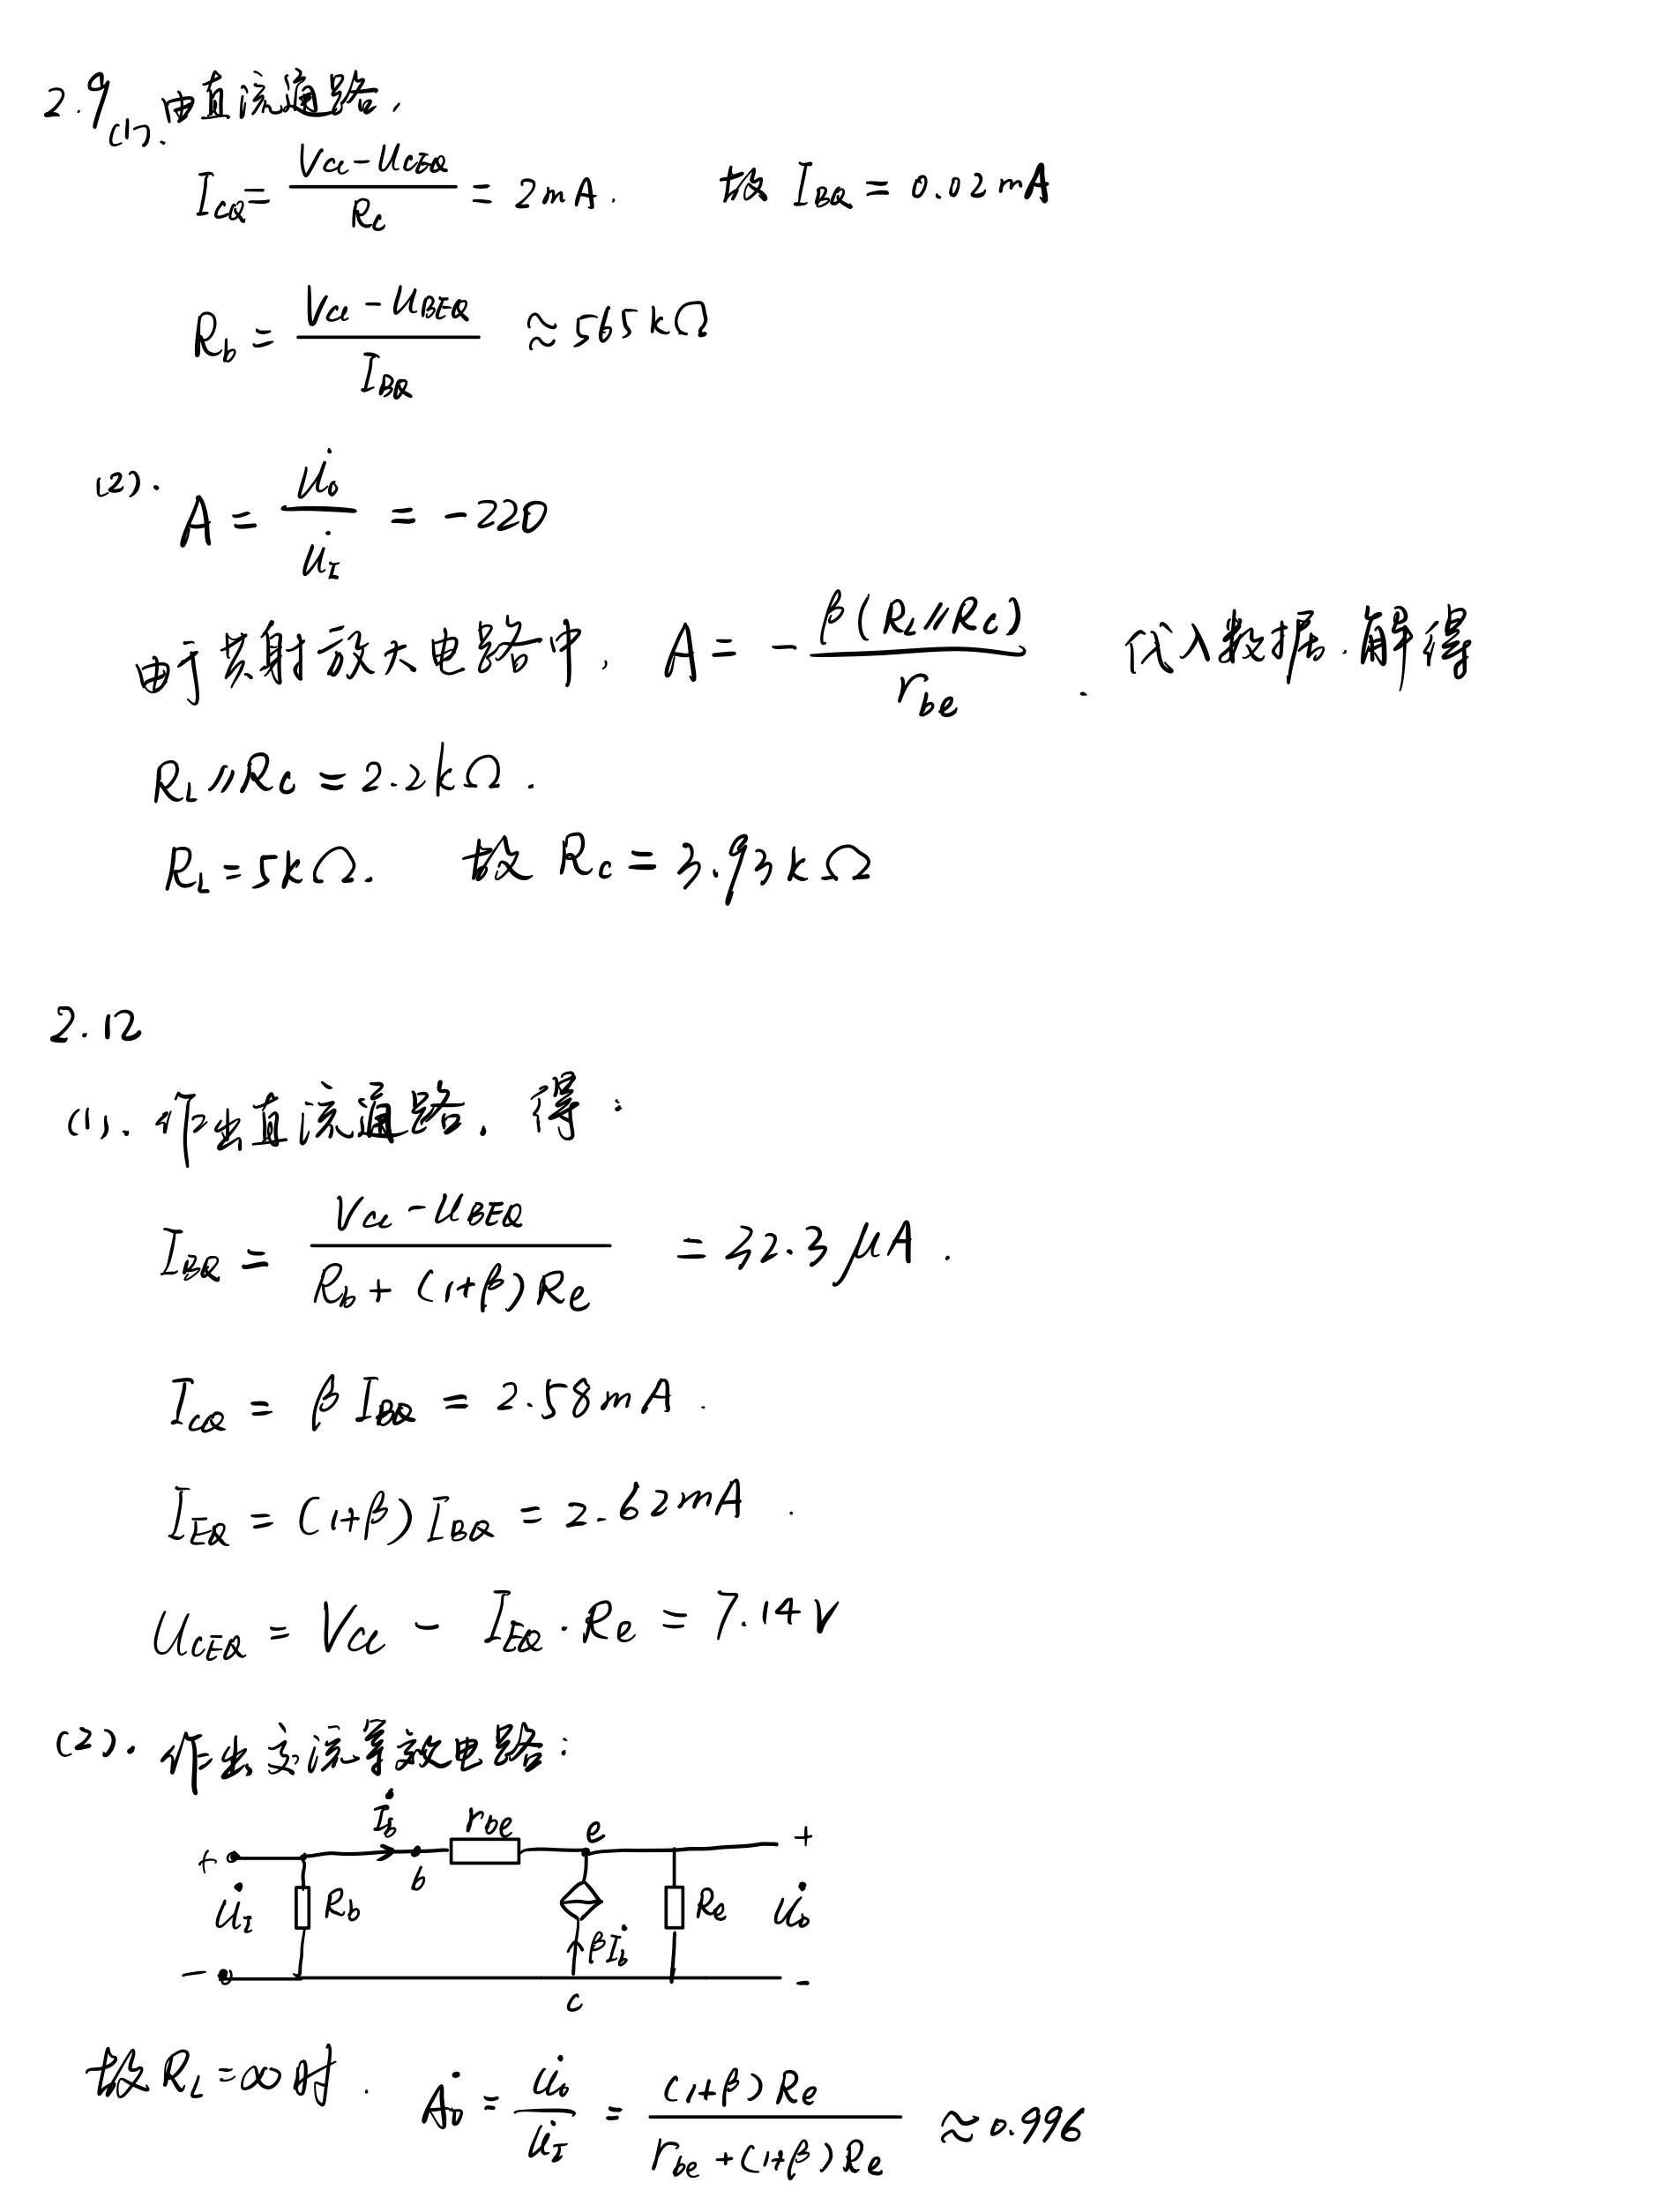 2.9 (1). 由直流通路,
I_CQ = (V_CC - U_CEQ) / R_c = 2mA. 故 I_BQ = 0.02mA
R_b = (V_CC - U_BEQ) / I_BQ ≈ 565kΩ
(2). A = U̇_o / U̇_I = -220
由于共射放大电路中, A = - β(R_L // R_C) / r_be . 代入数据. 解得
R_L // R_C = 2.2kΩ.
R_L = 5kΩ. 故 R_C = 3.93kΩ
2.12
(1). 作出直流通路. 得:
I_BQ = (V_CC - U_BEQ) / (R_b + (1+β)R_e) = 32.3μA.
I_CQ = β I_BQ = 2.58mA.
I_EQ = (1+β) I_BQ = 2.62mA.
U_CEQ = V_CC - I_EQ · R_e = 7.14V
(2). 作出交流等效电路:
İ_b r_be e +
+ b
U̇_I R_b R_e U̇_o
βİ_b
- -
c
故 R_L = ∞ 时. Ȧ_u = U̇_o / U̇_I = (1+β)R_e / (r_be + (1+β)R_e) ≈ 0.996